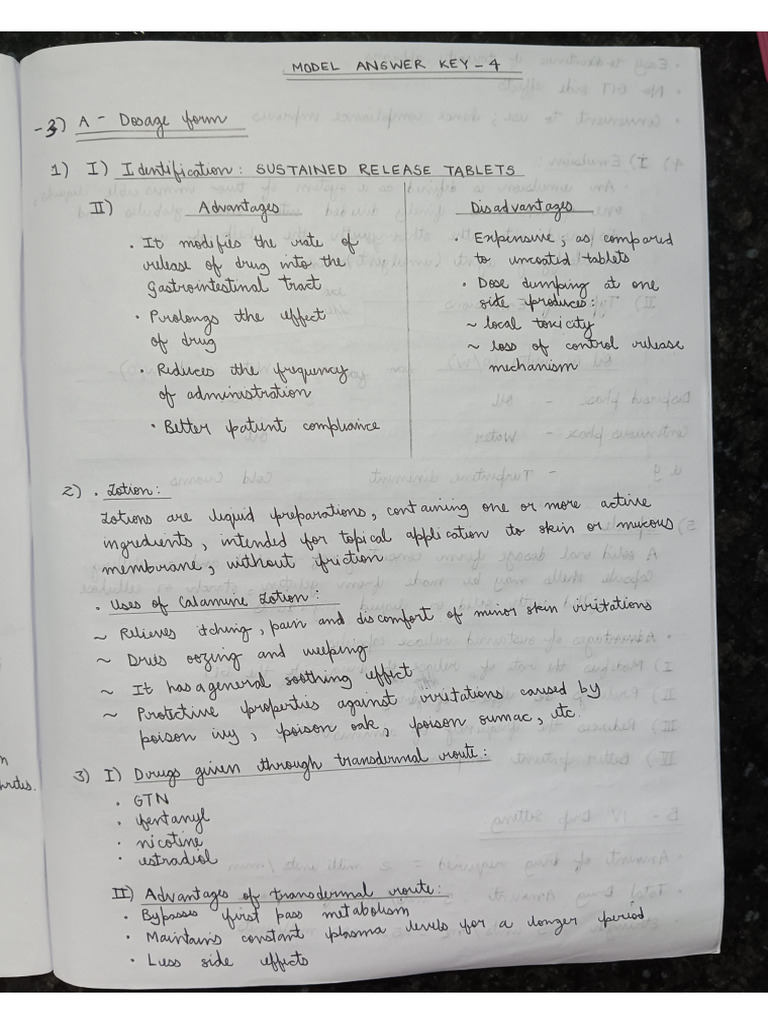 MODEL ANSWER KEY - 4
-3) A - Dosage form
1) I) Identification: SUSTAINED RELEASE TABLETS
II) Advantages
· It modifies the rate of
release of drug into the
Gastrointestinal tract
· Prolongs the effect
of drug
· Reduces the frequency
of administration
· Better patient compliance
Disadvantages
· Expensive, as compared
to uncoated tablets
· Dose dumping at one
site produces:
~ local toxicity
~ loss of control release
mechanism
2) · Lotion:
Lotions are liquid preparations, containing one or more active
ingredients, intended for topical application to skin or mucous
membrane, without friction
· Uses of Calamine Lotion:
~ Relieves itching, pain and discomfort of minor skin irritations
~ Dries oozing and weeping
~ It has a general soothing effect
~ Protective properties against irritations caused by
poison ivy, poison oak, poison sumac, etc.
3) I) Drugs given through transdermal route:
· GTN
· fentanyl
· nicotine
· estradiol
II) Advantages of transdermal route:
· Bypasses first pass metabolism
· Maintains constant plasma levels for a longer period
· Less side effects